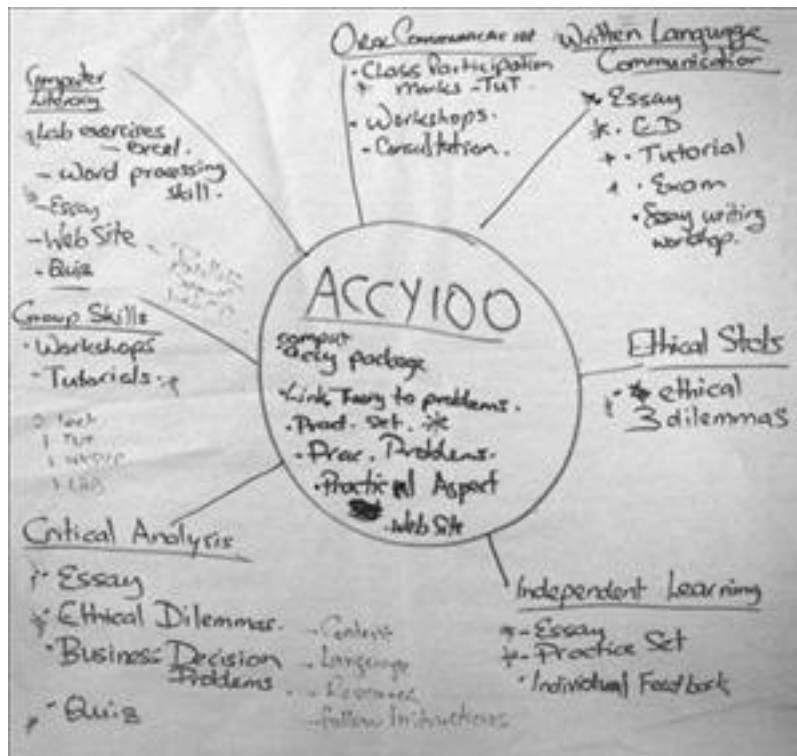 Computer
Literacy
Lab exercises
- excel.
- Word processing
skill.
- Essay
- Web Site
- Quiz
Oral Communication
• Class Participation
marks - TUT.
• Workshops.
- Consultation.
Written Language
Communication
Essay
C.D
• Tutorial
• Exam
• Essay writing
workshop.
ACCY100
compact
package
• Link Theory to problems.
• Prac. Set. *
• Prac. Problems.
• Practical Aspect
- Web Site
Group Skills
• Workshops
- Tutorials.
1 TUT
1 LAB
Ethical
ethical
3 dilemmas
Critical Analysis
Essay
Ethical Dilemmas.
• Business Decision
Problems
• Quiz
- Content
- Language
- Resource
- Follow Instructions
Independent Learning
- Essay
- Practice Set
• Individual Feedback